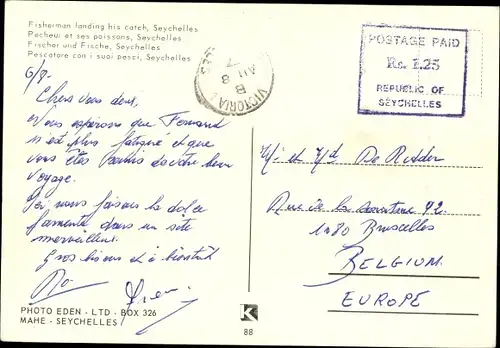 Fisherman landing his catch, Seychelles
Pecheur et ses poissons, Seychelles
Fischer und Fische, Seychelles
Pescatore con i suoi pesci, Seychelles
6/8-
Chers vous deux,
Nous espérons que Fernand
n'est plus fatigué et que
vous êtes de votre bon
voyage.
Ici nous faisons la dolce
famente dans un site
merveilleux.
Gros bisous et à bientôt
PHOTO EDEN - LTD - BOX 326
MAHE - SEYCHELLES
VICTORIA
B
8 AU
7
POSTAGE PAID
Rs. 1.25
REPUBLIC OF
SEYCHELLES
M/r et M/d De Ridder
Rue de la 42.
1180 Bruxelles
BELGIUM.
EUROPE
K
88